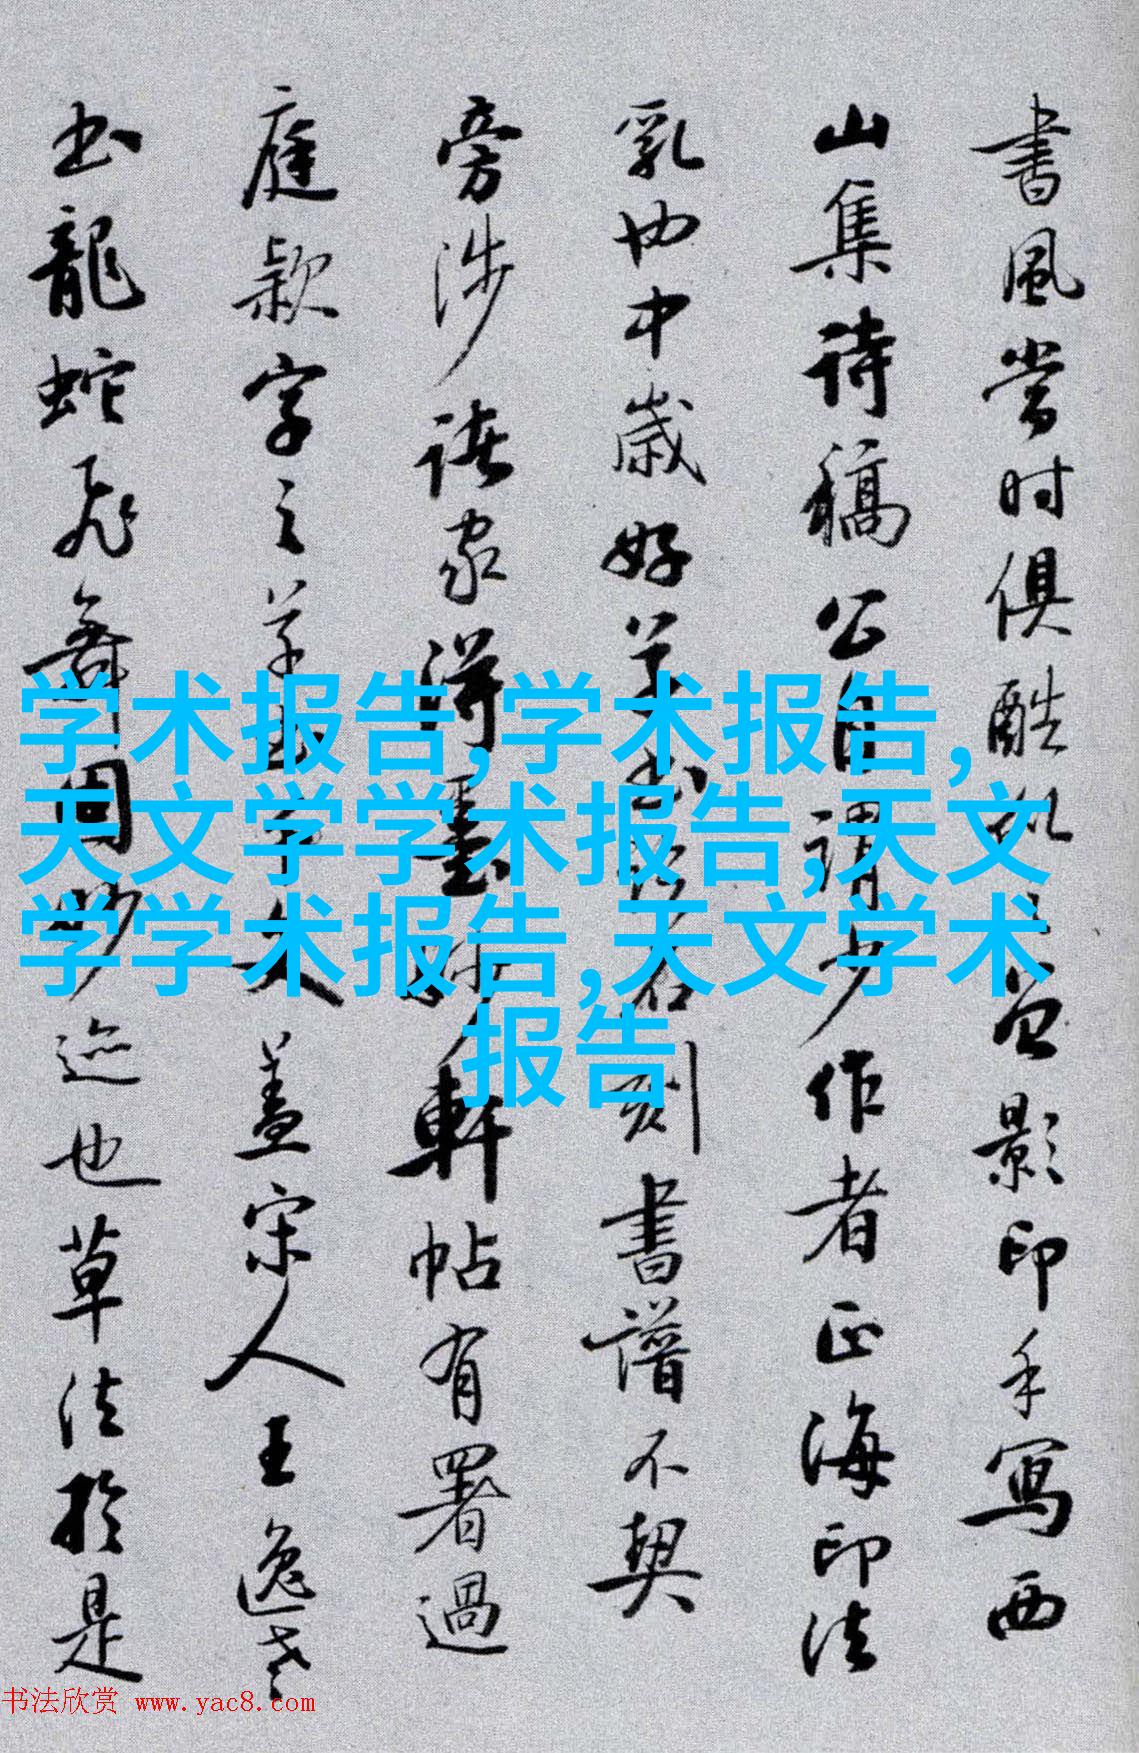 書風當时俱酷影印手寫西
山集詩稿公自謂少作者正海印法
乳也中歲好草书名刻書譜不契
旁涉諸家淂墨妙軒帖有署過
庭款字之草书千文蓋宋人王逸老
书龍蛇飛舞固妙迹也草法於是
学术报告,学术报告,
天文学学术报告,天文
学学术报告,天文学术
报告
书法欣赏 www.yac8.com